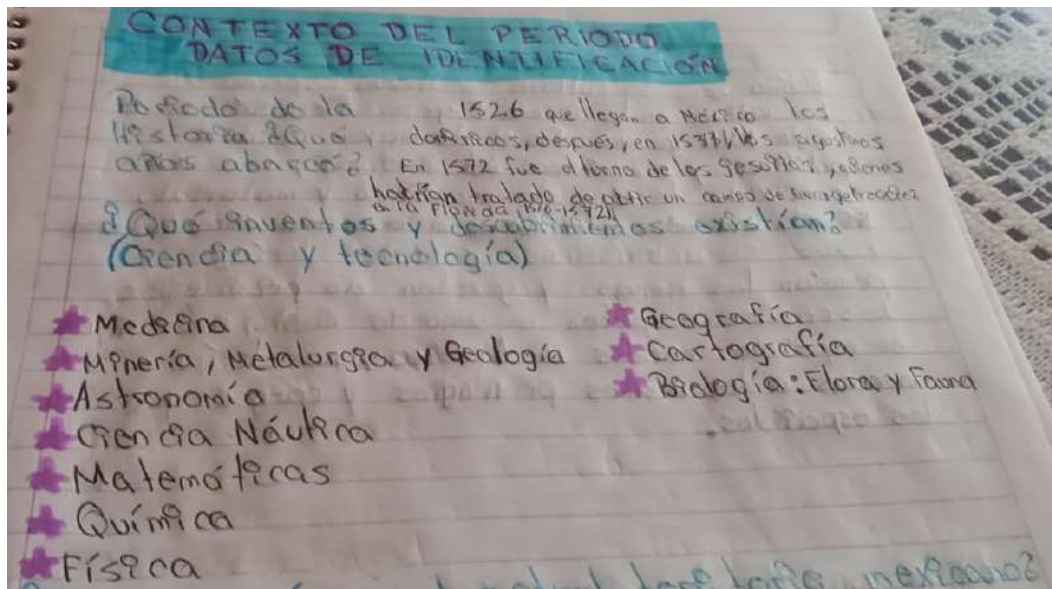 CONTEXTO DEL PERIODO
DATOS DE IDENTIFICACIÓN
Periodo de la 1526 que llegan a México los
Historia ¿Qué dominicos, después, en 1533, los agustinos
años abarca? En 1572 fue el turno de los Jesuitas, quienes
habrían tratado de abrir un campo de
a la Florida (1566-1572)
¿Qué inventos y descubrimientos existían?
(Ciencia y tecnología)
Medicina
Minería, Metalurgia y Geología
Astronomía
Ciencia Náutica
Matemáticas
Química
Física
Geografía
Cartografía
Biología: Flora y Fauna
territorio mexicano?